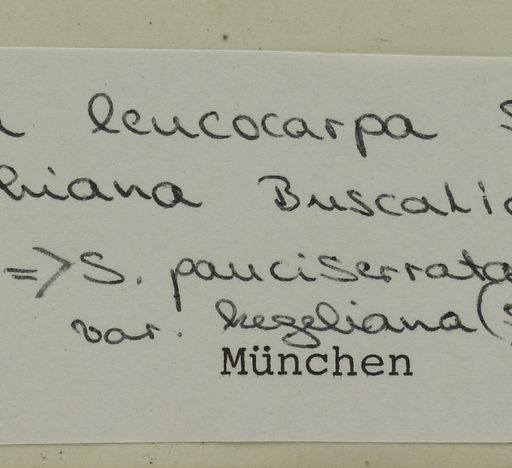 leucocarpa S
hiana Buscalio
=> S. pauciserrata
var. kegeliana (S
München